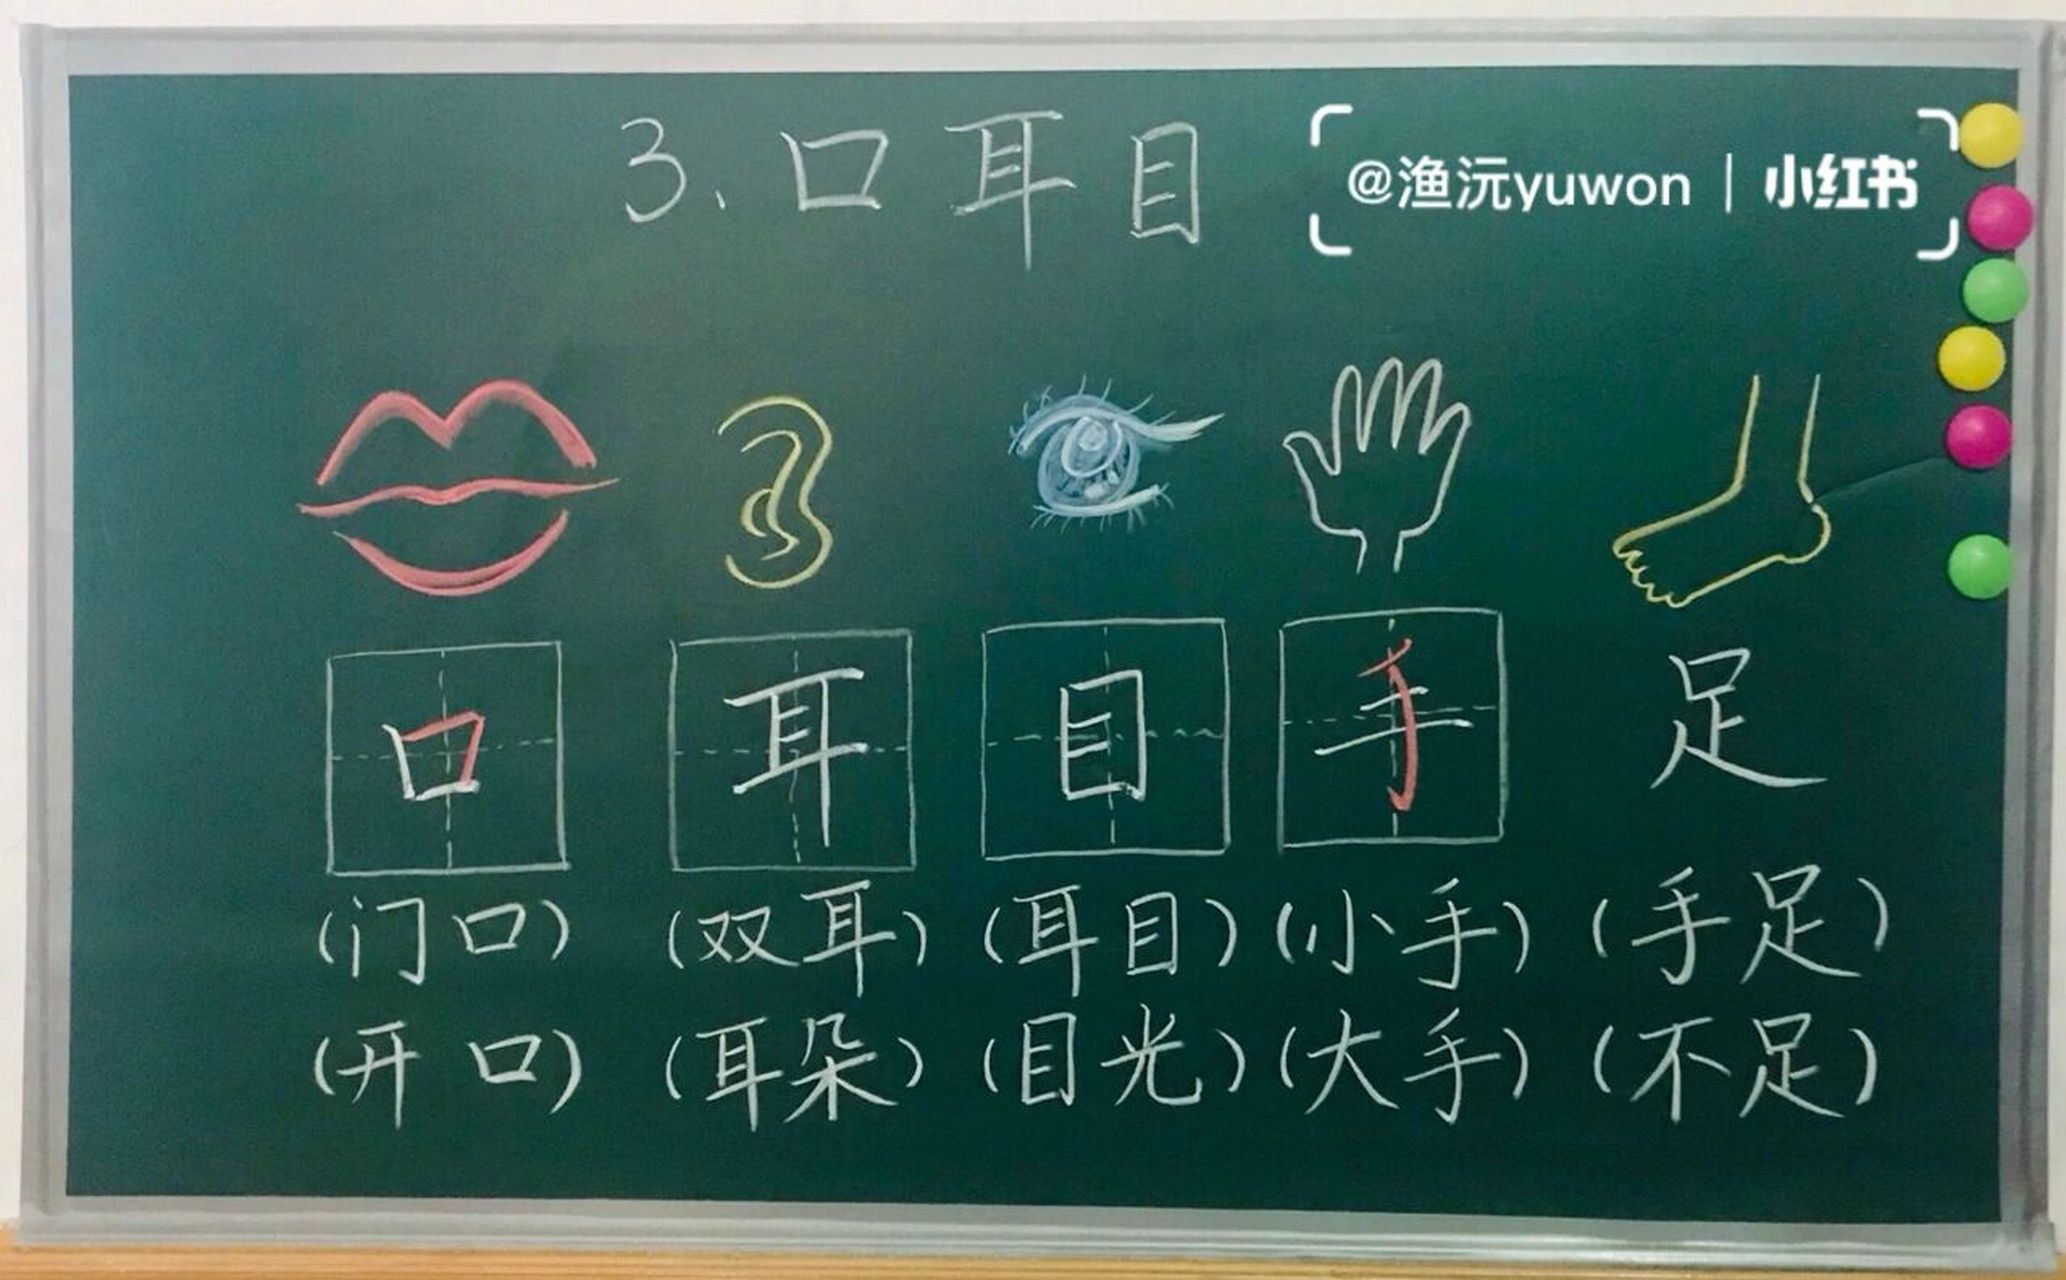 3、口耳目
@渔沅yuwon | 小红书
口 耳 目 手 足
(门口) (双耳) (耳目) (小手) (手足)
(开口) (耳朵) (目光) (大手) (不足)